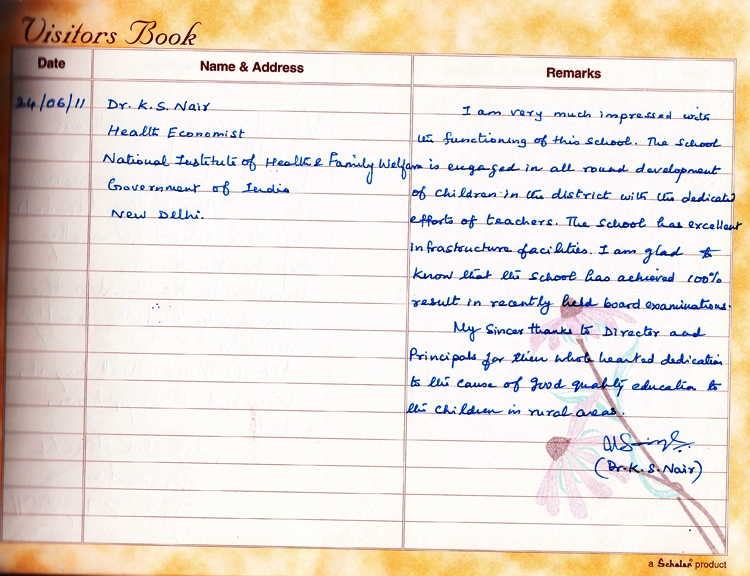 Visitors Book
Date
Name & Address
Remarks
24/06/11
Dr. K. S. Nair
Health Economist
National Institute of Health & Family Welfare
Government of India
New Delhi.
I am very much impressed with
the functioning of this school. The school
is engaged in all round development
of children in the district with the dedicated
efforts of teachers. The school has excellent
infrastructure facilities. I am glad to
know that the school has achieved 100%
result in recently held board examinations.
My Sincer thanks to Director and
Principals for their whole hearted dedication
to the cause of good quality education to
the children in rural areas.
(Dr. K. S. Nair)
a Scholar product